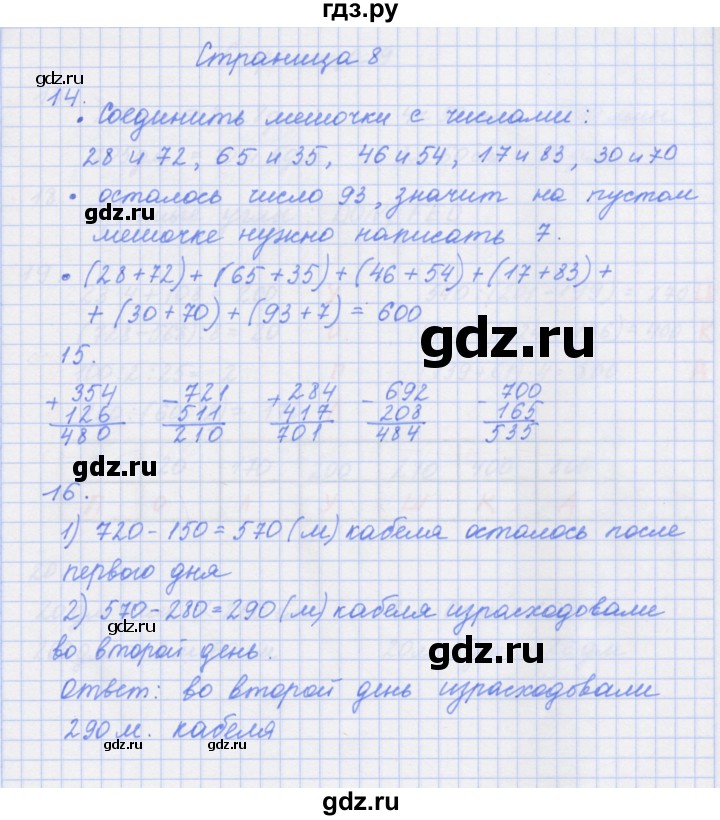 гдз.ру
Страница 8
gdz.ru
14.
• Соединить мешочки с числами:
28 и 72, 65 и 35, 46 и 54, 17 и 83, 30 и 70
• осталось число 93, значит на пустом
gdz.ru
мешочке нужно написать 7.
• (28+72) + (65+35) + (46+54) + (17+83) +
+ (30+70) + (93+7) = 600
gdz.ru
15.
+ 354 - 721 + 284 - 692 - 700
126 511 417 208 165
480 210 701 484 535
gdz.ru
16.
1) 720 - 150 = 570 (м) кабеля осталось после
первого дня
2) 570 - 280 = 290 (м) кабеля израсходовали
во второй день.
gdz.ru
Ответ: во второй день израсходовали
290 м. кабеля
gdz.ru
gdz.ru
gdz.ru